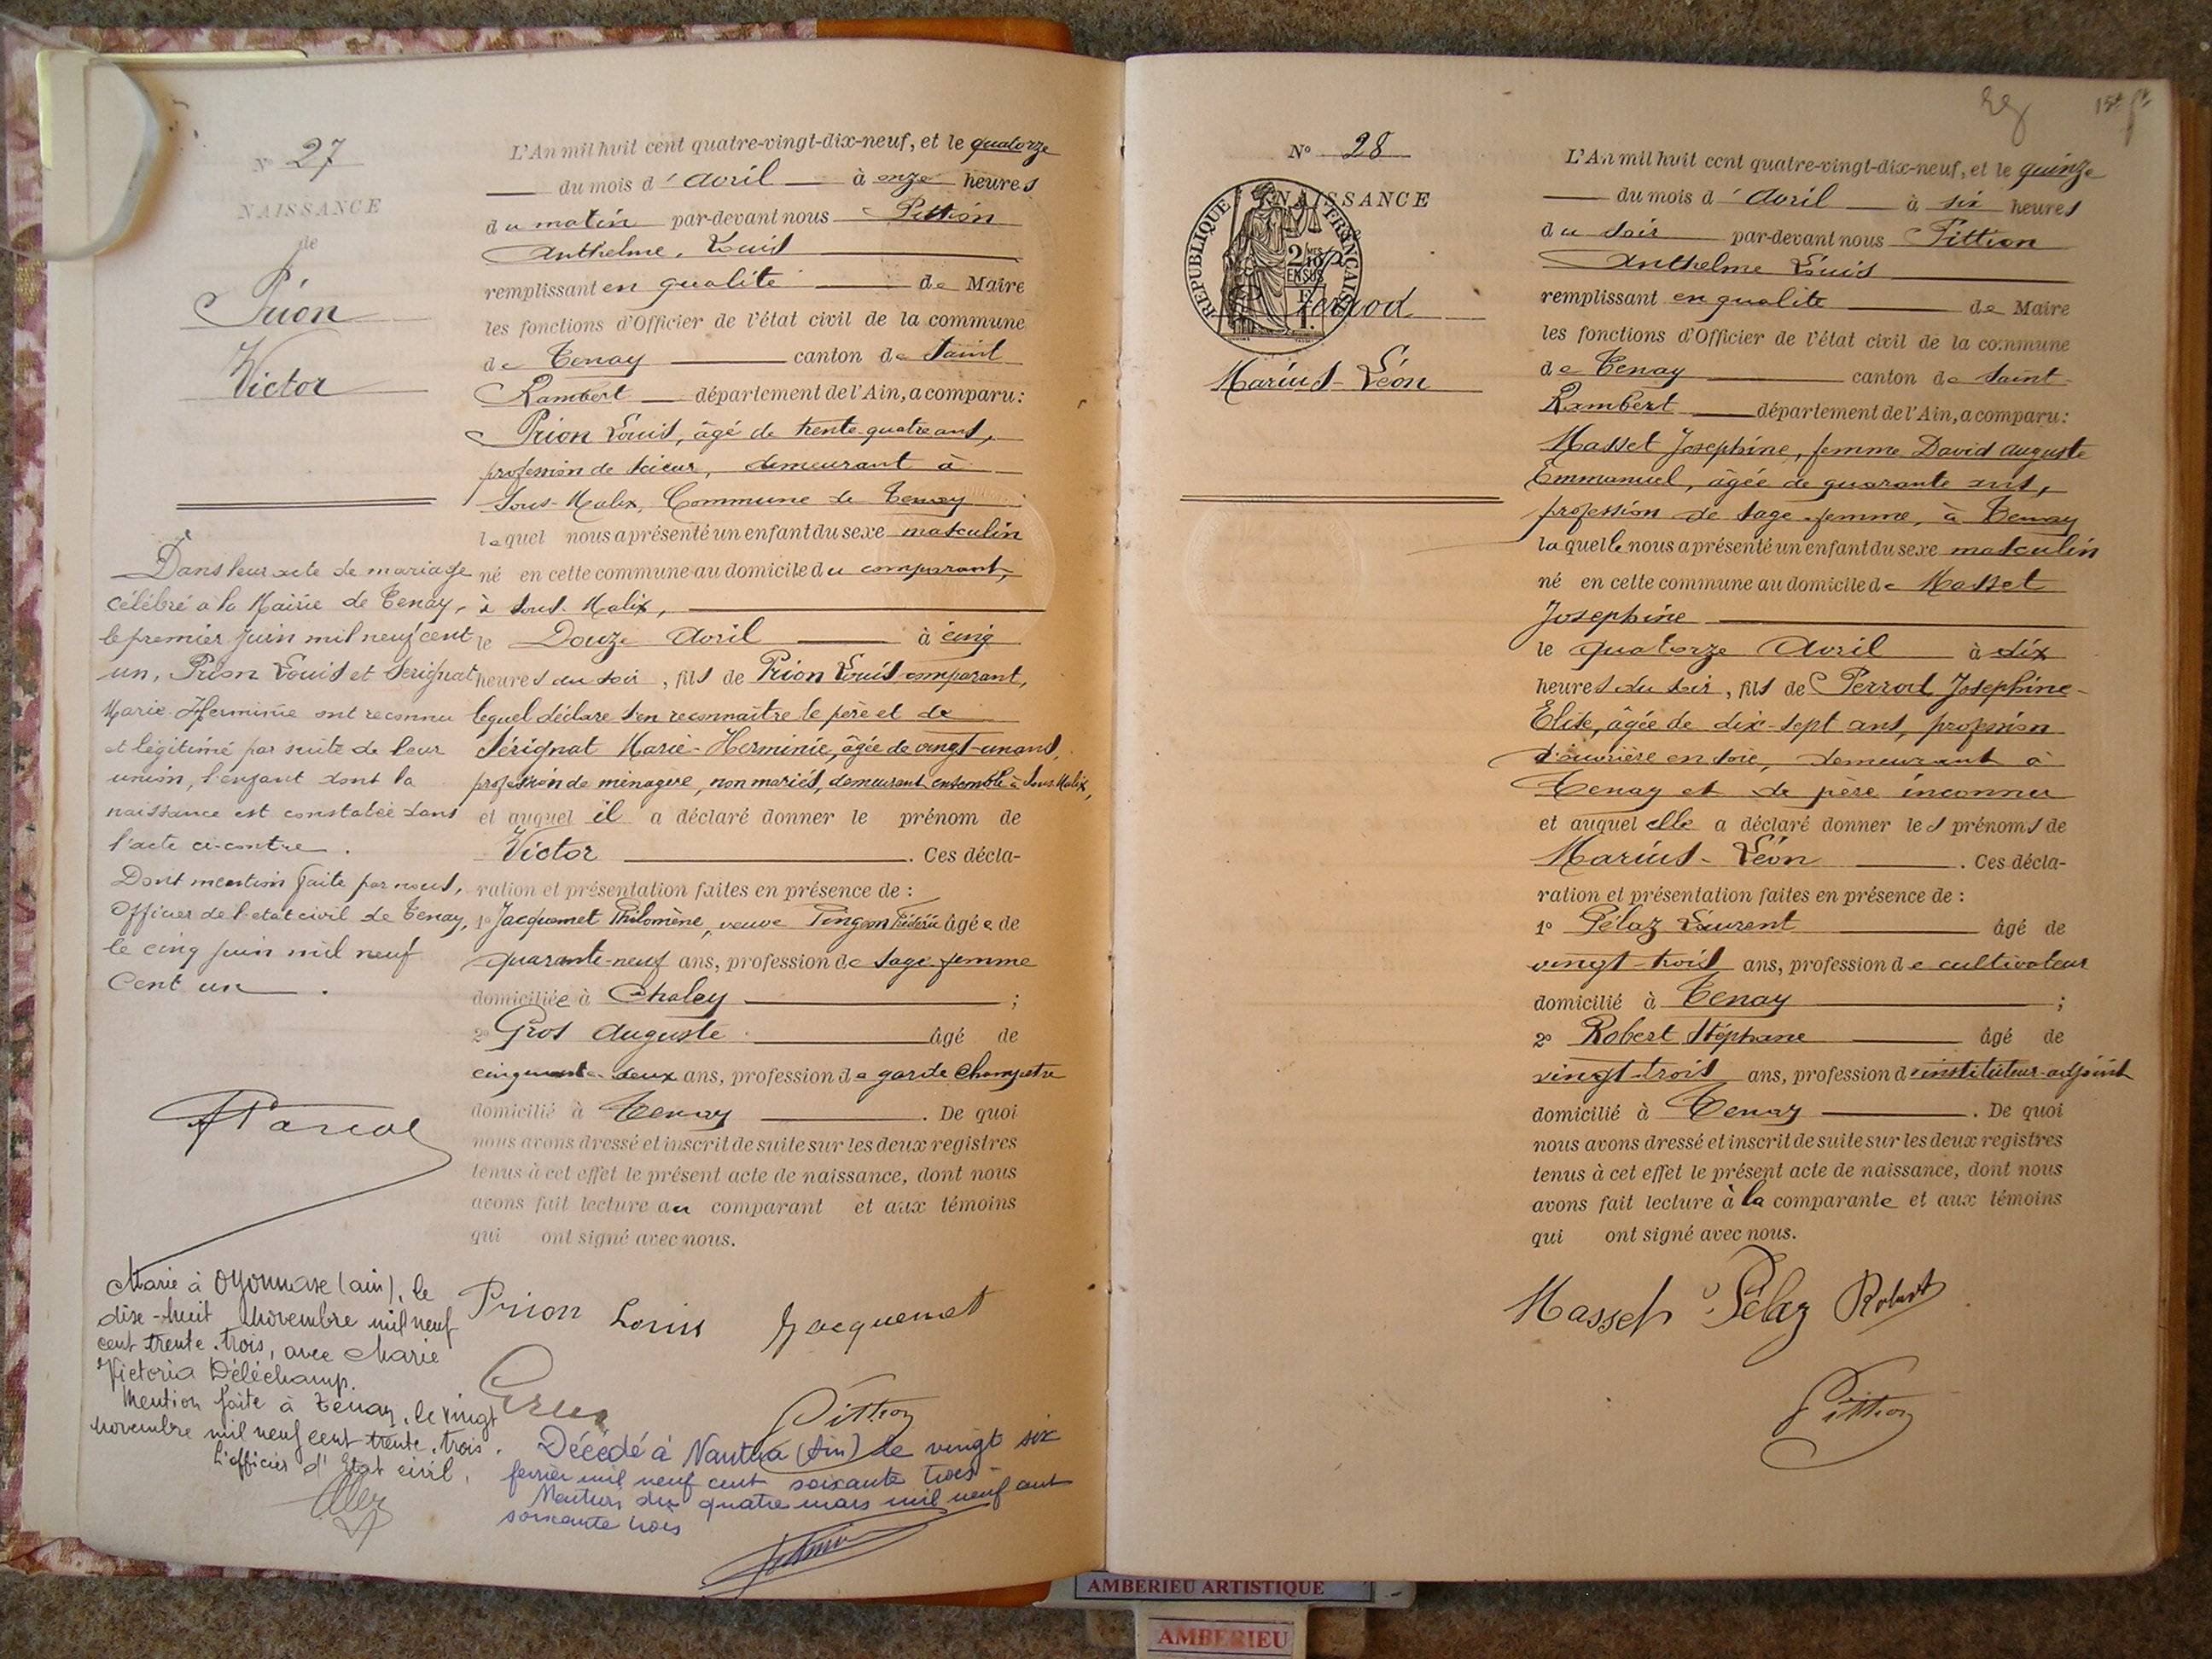 N° 27
NAISSANCE
de
Prion
Victor
Dans leur acte de mariage
célébré à la Mairie de Tenay,
le premier juin mil neuf cent
un, Prion Louis et Sérignat
Marie-Herminie ont reconnu
et légitimé par suite de leur
union, l'enfant dont la
naissance est constatée dans
l'acte ci-contre.
Dont mention faite par nous,
Officier de l'état civil de Tenay,
le cinq juin mil neuf
Cent un.
Marié à Oyonnaxe (ain), le
dixe-huit Novembre mil neuf
cent trente-trois, avec Marie
Victoria Déléchamp.
Mention faite à Tenay, le vingt
novembre mil neuf cent trente-trois.
L'officier d'Etat civil,
L'An mil huit cent quatre-vingt-dix-neuf, et le quatorze
du mois d'avril à onze heures
du matin par-devant nous Pittion
Anthelme, Louis
remplissant en qualité de Maire
les fonctions d'Officier de l'état civil de la commune
de Tenay canton de Saint
Rambert département de l'Ain, a comparu:
Prion Louis, âgé de trente-quatre ans,
profession de scieur, demeurant à
Sous-Malix, Commune de Tenay
lequel nous a présenté un enfant du sexe masculin
né en cette commune au domicile du comparant,
à Sous-Malix,
le Douze Avril à cinq
heures du soir, fils de Prion Louis comparant,
lequel déclare s'en reconnaître le père et de
Sérignat Marie-Herminie, âgée de vingt-un ans,
profession de ménagère, non mariés, demeurant ensemble à Sous-Malix,
et auquel il a déclaré donner le prénom de
Victor. Ces décla-
ration et présentation faites en présence de :
1° Jacquemet Philomène, veuve Pingeon âgée de
quarante-neuf ans, profession de sage-femme
domiciliée à Chaley ;
2° Gros Auguste âgé de
cinquante-deux ans, profession de garde champetre
domicilié à Tenay. De quoi
nous avons dressé et inscrit de suite sur les deux registres
tenus à cet effet le présent acte de naissance, dont nous
avons fait lecture au comparant et aux témoins
qui ont signé avec nous.
Prion Louis Jacquemet
Gros Pittion
Décédé à Nantua (Ain) le vingt six
fevrier mil neuf cent soixante trois
Mention du quatre mars mil neuf cent
soixante trois
N° 28
NAISSANCE
RÉPUBLIQUE FRANÇAISE
2/10 EN SUS
Perrod
Marius-Léon
L'An mil huit cent quatre-vingt-dix-neuf, et le quinze
du mois d'avril à six heures
du soir par-devant nous Pittion
Anthelme Louis
remplissant en qualité de Maire
les fonctions d'Officier de l'état civil de la commune
de Tenay canton de Saint-
Rambert département de l'Ain, a comparu:
Masset Josephine, femme David Auguste
Emmanuel, âgée de quarante ans,
profession de sage-femme, à Tenay
laquelle nous a présenté un enfant du sexe masculin
né en cette commune au domicile de Masset
Josephine
le quatorze Avril à dix
heures du soir, fils de Perrod Josephine-
Elise, âgée de dix-sept ans, profession
d'ouvrière en soie, demeurant à
Tenay et de père inconnu
et auquel elle a déclaré donner les prénoms de
Marius-Léon. Ces décla-
ration et présentation faites en présence de :
1° Pélaz Laurent âgé de
vingt-trois ans, profession de cultivateur
domicilié à Tenay ;
2° Robert Stéphane âgé de
vingt-trois ans, profession d'instituteur-adjoint
domicilié à Tenay. De quoi
nous avons dressé et inscrit de suite sur les deux registres
tenus à cet effet le présent acte de naissance, dont nous
avons fait lecture à la comparante et aux témoins
qui ont signé avec nous.
Masset Pélaz Robert
Pittion
AMBERIEU ARTISTIQUE
AMBERIEU